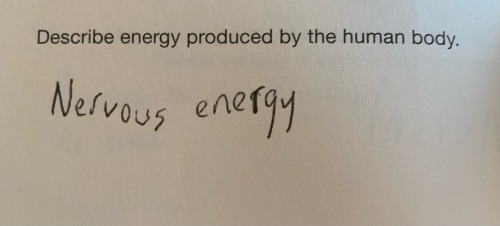 Describe energy produced by the human body.
Nervous energy